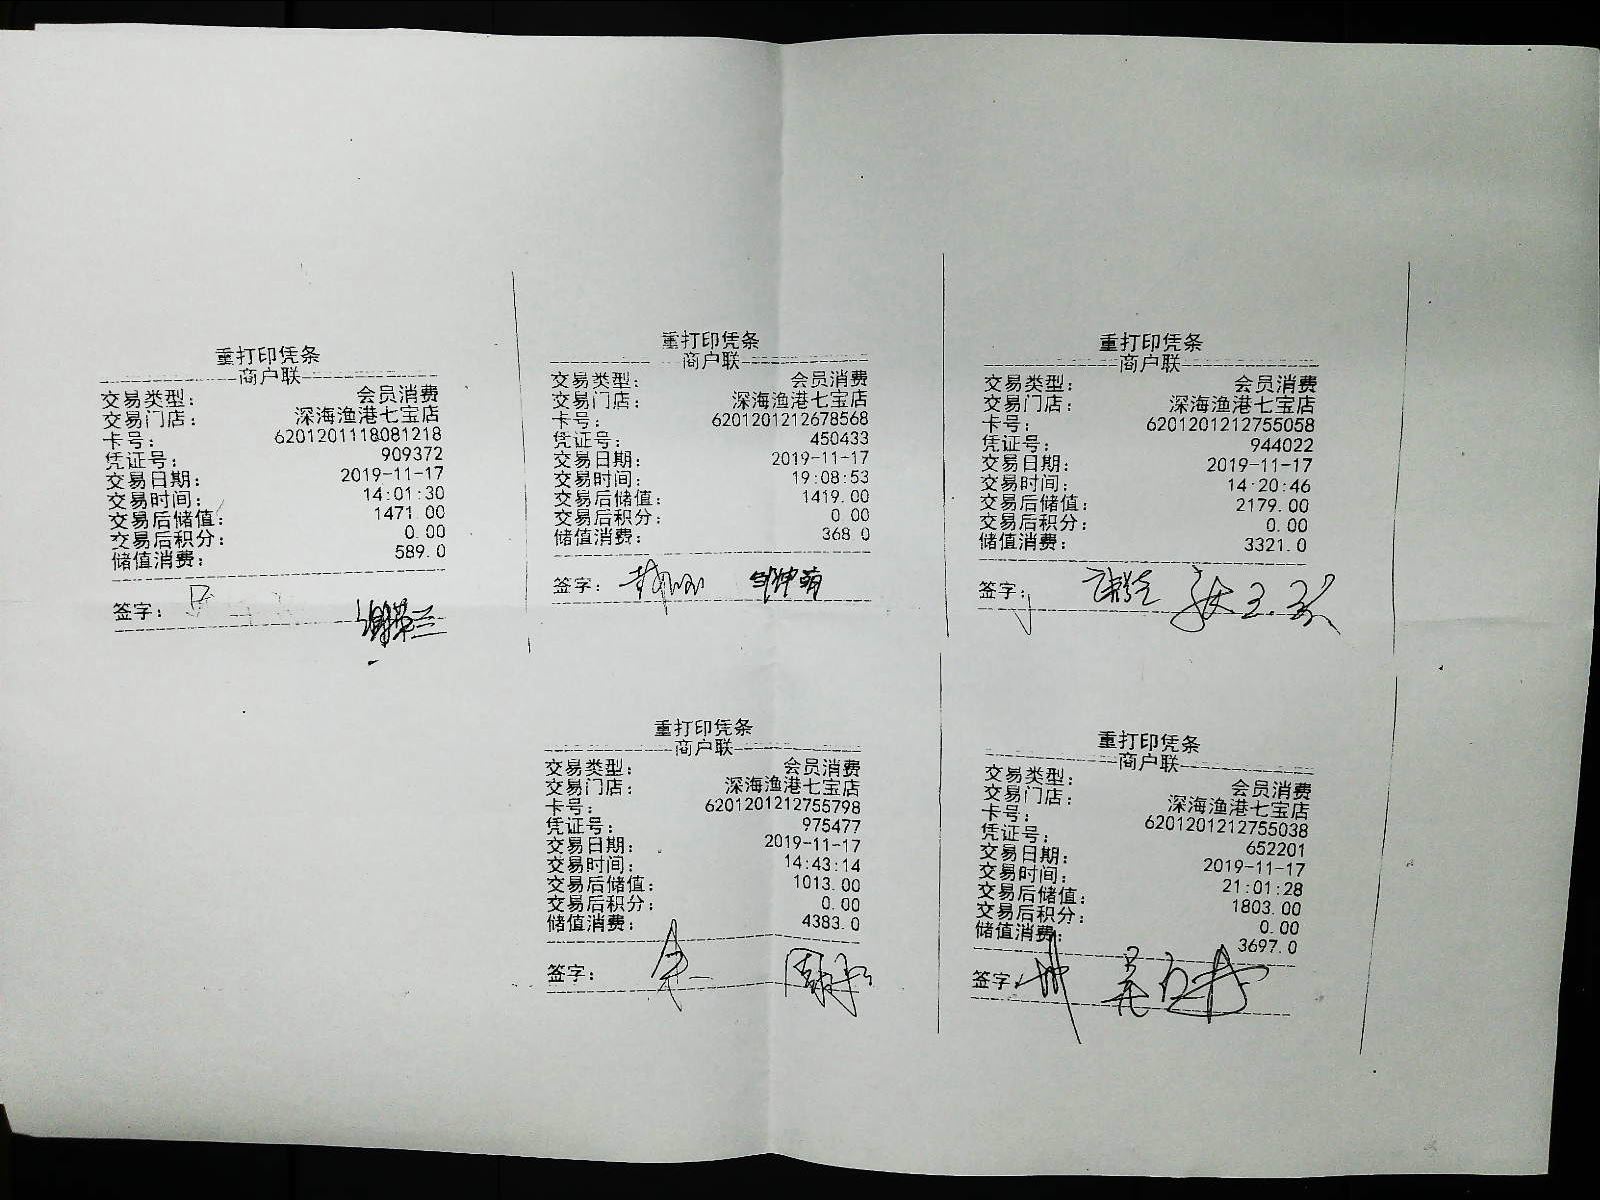 重打印凭条
商户联
交易类型: 会员消费
交易门店: 深海渔港七宝店
卡号: 6201201118081218
凭证号: 909372
交易日期: 2019-11-17
交易时间: 14:01:30
交易后储值: 1471.00
交易后积分: 0.00
储值消费: 589.0
签字:
重打印凭条
商户联
交易类型: 会员消费
交易门店: 深海渔港七宝店
卡号: 6201201212678568
凭证号: 450433
交易日期: 2019-11-17
交易时间: 19:08:53
交易后储值: 1419.00
交易后积分: 0.00
储值消费: 368.0
签字:
重打印凭条
商户联
交易类型: 会员消费
交易门店: 深海渔港七宝店
卡号: 6201201212755058
凭证号: 944022
交易日期: 2019-11-17
交易时间: 14:20:46
交易后储值: 2179.00
交易后积分: 0.00
储值消费: 3321.0
签字:
重打印凭条
商户联
交易类型: 会员消费
交易门店: 深海渔港七宝店
卡号: 6201201212755798
凭证号: 975477
交易日期: 2019-11-17
交易时间: 14:43:14
交易后储值: 1013.00
交易后积分: 0.00
储值消费: 4383.0
签字:
重打印凭条
商户联
交易类型: 会员消费
交易门店: 深海渔港七宝店
卡号: 6201201212755038
凭证号: 652201
交易日期: 2019-11-17
交易时间: 21:01:28
交易后储值: 1803.00
交易后积分: 0.00
储值消费: 3697.0
签字: